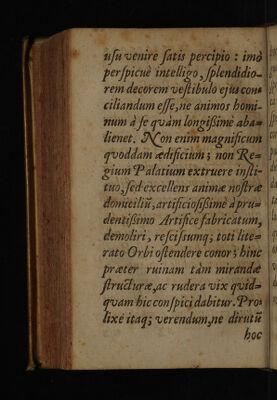 usu venire satis percipio: imò
perspicuè intelligo, splendidio-
rem decorem vestibulo ejus con-
ciliandum esse, ne animos homi-
num à se quàm longissimè aba-
lienet. Non enim magnificum
quoddam ædificium; non Re-
gium Palatium extruere insti-
tuo, sed excellens animæ nostræ
domiciliū, artificiosissimè à pru-
dentissimo Artifice fabricatum,
demoliri, rescissumq; toti lite-
rato Orbi ostendere conor; hinc
præter ruinam tàm mirandæ
structuræ, ac rudera vix quid-
quam hic conspici dabitur. Pro-
lixè itaq; verendum, ne dirutū
hoc